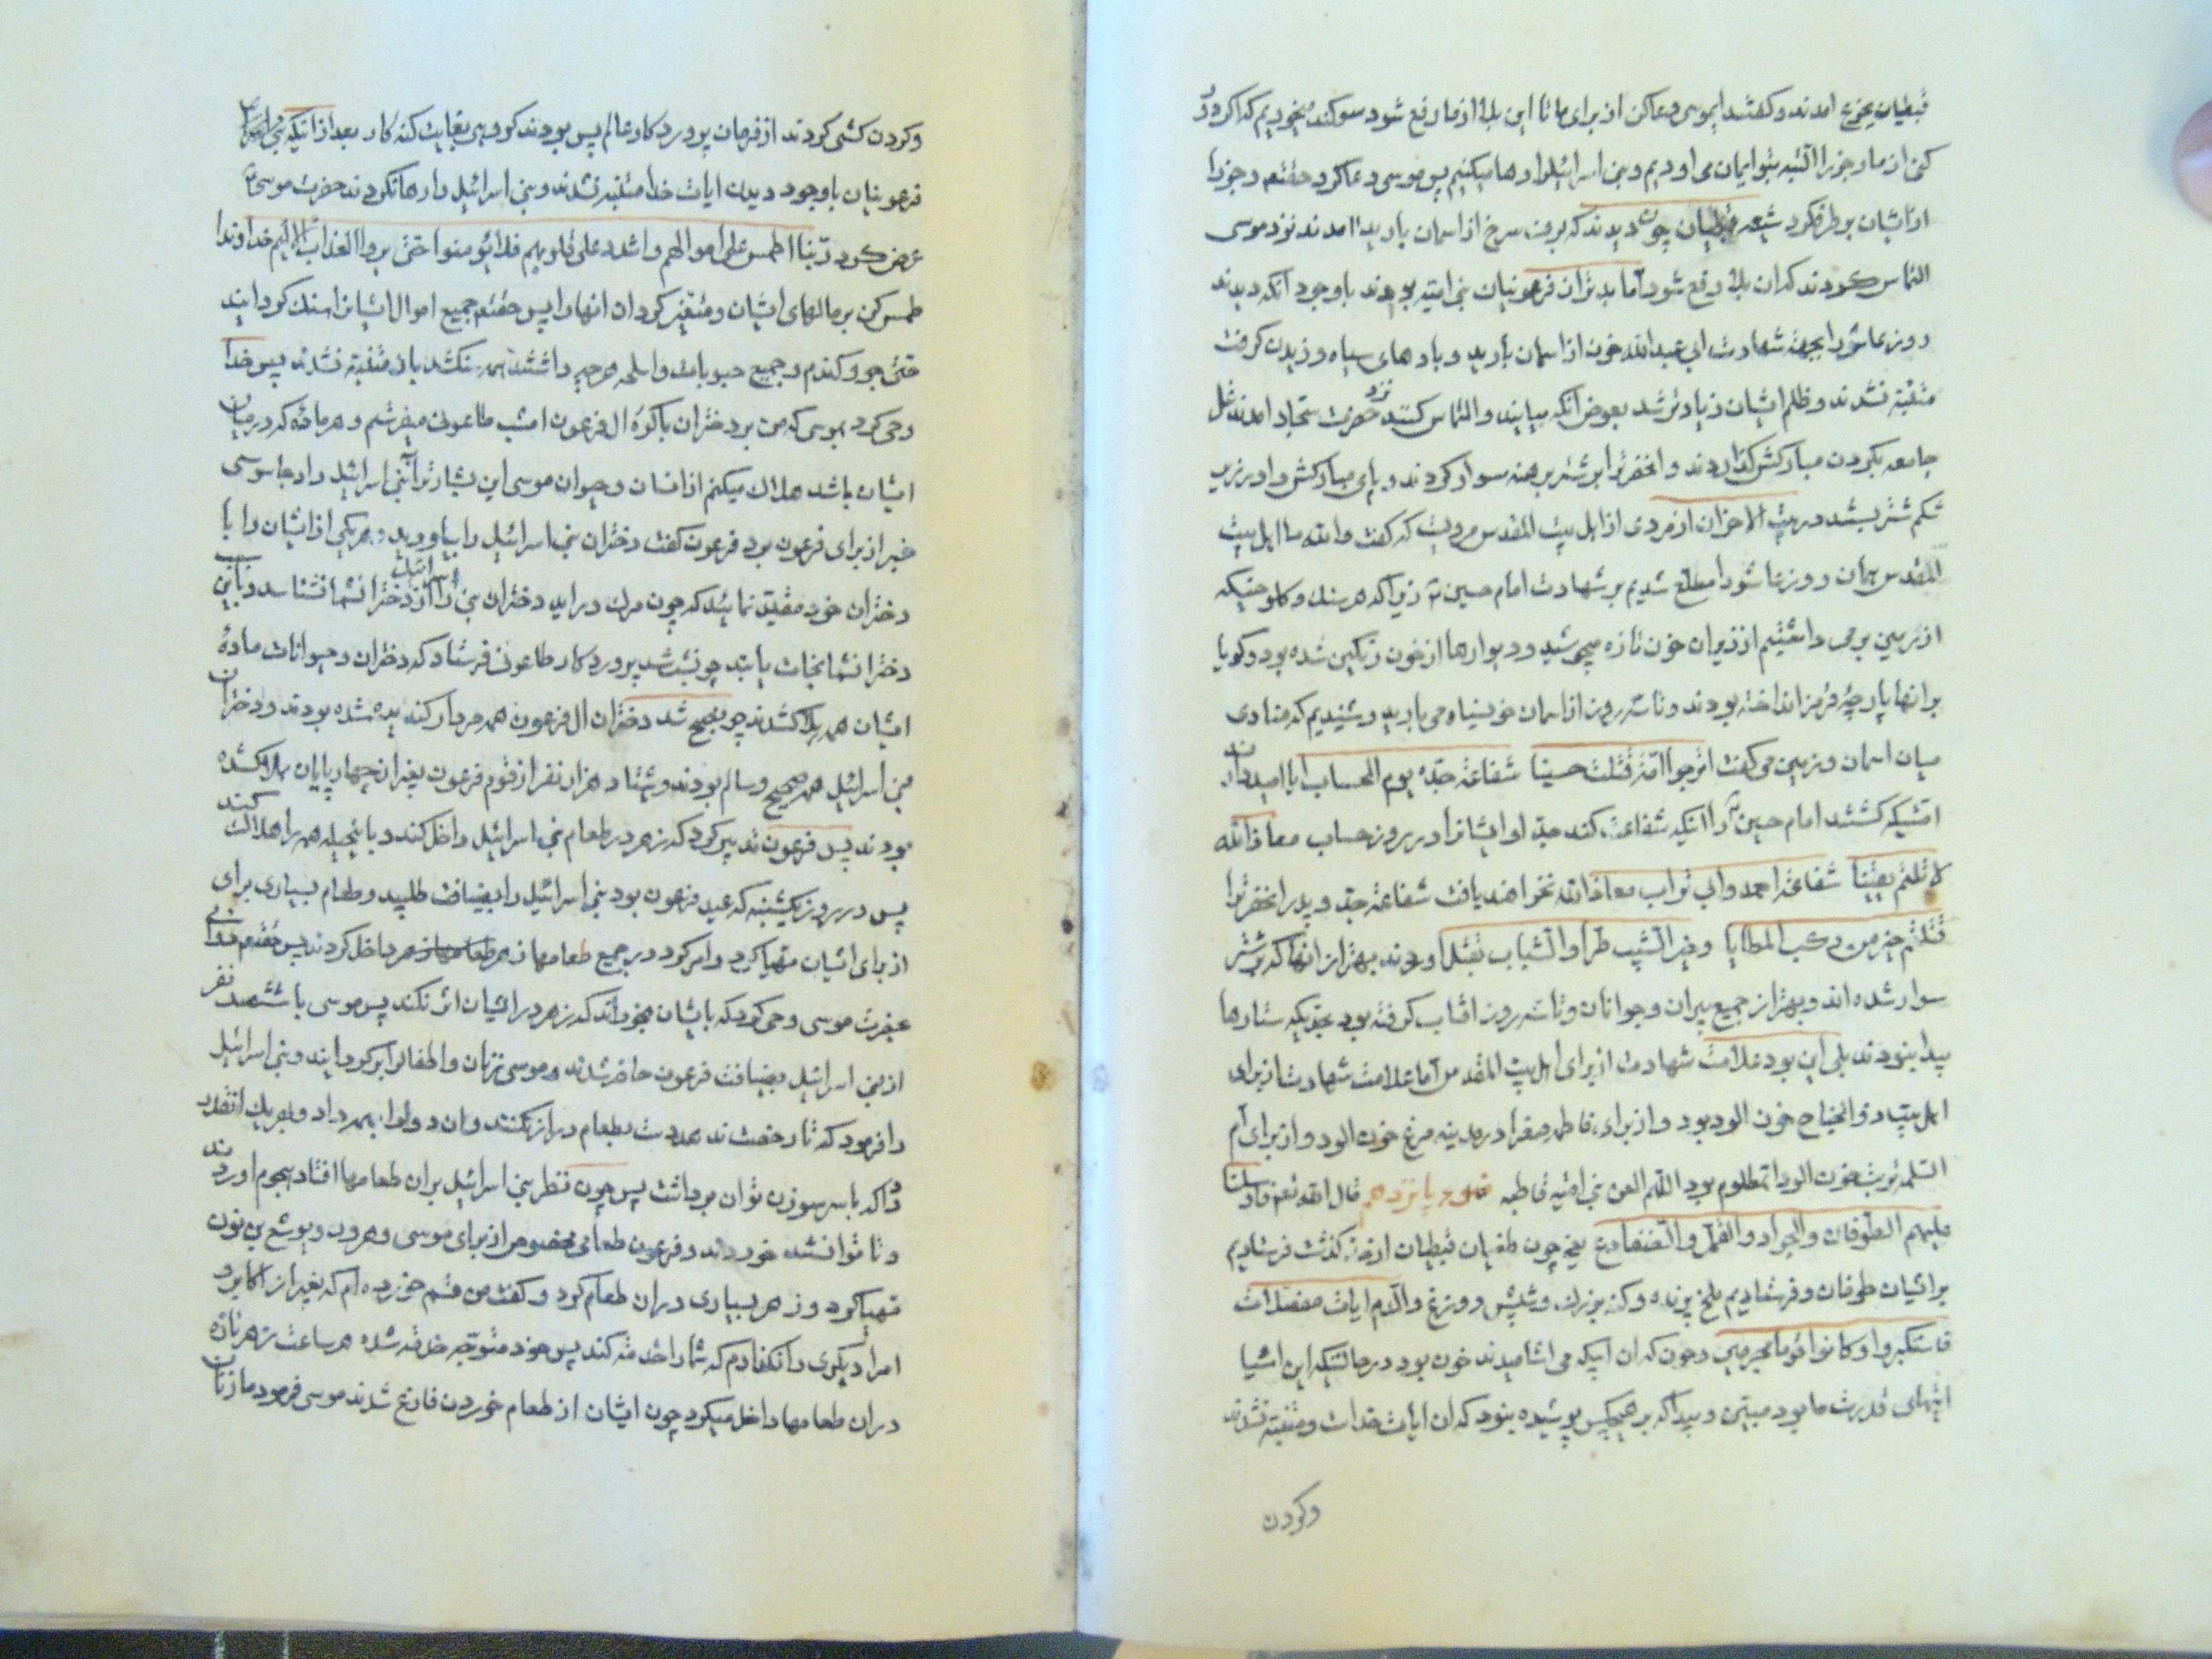 قبطیان بجزع امدند و گفتند ایموسی دعا کن از برای ما تا این بلا از ما رفع شود سوکند میخوریم که اکر دور
کنی از ما رجز را البته بتو ایمان می اوریم و بنی اسرائیل را رها میکنیم پس موسی دعا کرد حقتعم رجز را
از ایشان بر طرف کرد شیعه قبطیان چون دیدند که برف سرخ از اسمان بارید امدند نزد موسی
التماس کردند که ان بلا رفع شود اما بدتر از فرعونیان بنی امیه بودند با وجود انکه دیدند
روز عاشورا بجهة شهادت ابی عبدالله خون از اسمان بارید و بادهای سیاه وزیدن کرفت
متنبّه نشدند و ظلم ایشان زیادتر شد بعوض انکه بیایند و التماس کنند نزد حضرت سجاد امدند غل
جامعه بکردن مبارکش کذاردند و انحضرترا بر شتر برهنه سوار کردند و پای مبارکش را در زیر
شکم شتر بستند در بیت الاحزان از مردی از اهل بیت المقدس مرویست که کفت والله ما اهل بیت
المقدس همان روز عاشورا مطلع شدیم بر شهادت امام حسین ع زیرا که هر سنک و کلوخیکه
از زمین بر می داشتیم از زیر ان خون تازه میجوشید و دیوارها از خون رنکین شده بود و کویا
بر انها پارچهٔ قرمز انداخته بودند و تا سه روز از اسمان خون سیاه می بارید و شنیدیم که منادی
میان اسمان و زمین می کفت اترجوا امّة قتلت حسینا شفاعة جدّه یوم الحساب ایا امید دارند
امتیکه کشتند امام حسین را اینکه شفاعت کند جدّ او ایشانرا در روز حساب معاذ الله
لا نلتم یقینا شفاعة احمد و ابی تراب معاذ الله نخواهند یافت شفاعة جدّ و پدر انحضرترا
قتلتم خیر من رکب المطایا و خیر الشّیب طرّا و الشّباب بقتل اوردند بهتر از انها که بر شتر
سوار شده اند و بهتر از جمیع پیران و جوانان و تا سه روز افتاب کرفته بود بحدّیکه ستارها
پیدا بنودند بلی این بود علامت شهادت از برای اهل بیت المقدس اما علامت شهادت از برای
اهل بیت ذو الجناح خون الود بود و از برای فاطمه صغرا در مدینه مرغ خون الود و از برای ام
السلمه تربت خون الود انمظلوم بود اللّهم العن بنی امیّه قاطبه پانزدهم قال الله تعم فارسلنا
علیهم الطّوفان و الجراد و القمّل و الضّفادع یعنی چون طغیان قبطیان از حد کذشت فرستادیم
بر ایشان طوفان و فرستادیم ملخ پرنده و کنه بزرک و شپش و وزغ و الدّم ایات مفصّلات
فاستکبروا و کانوا قوما مجرمین و خون که ان ابیکه می اشامیدند خون بود در حالتیکه این اشیا
ایتهای قدرت ما بود مبیّن و پیدا که بر هیچکس پوشیده بنود که ان ایات خداست و متنبّه نشدند
و کردن
و کردن کشی کردند از فرمان پروردکار عالم پس بودند کروهی بغایت کنه کار بعد از انیکه
فرعونیان با وجود دیدن ایات خدا متنبّه نشدند و بنی اسرائیل را رها نکردند حضرت موسی ع
عرض کرد ربّنا اطمس علی اموالهم و اشدد علی قلوبهم فلا یؤمنوا حتی یروا العذاب الالیم خداوندا
طمس کن بر مالهای ایشان و متغیّر کردان انها را پس حقتعم جمیع اموال ایشانرا سنک کردانید
حتی جو و کندم و جمیع حبوبات و اسلحه هر چه داشتند همه سنک شد باز متنبّه نشدند پس خدا
وحی کرد بموسی که من بر دختران باکرهٔ ال فرعون امشب طاعون میفرستم و هر ماده که در میان
ایشان باشد هلاک میکنم از انسان و حیوان موسی این بشارترا ببنی اسرائیل داد جاسوسی
خبر از برای فرعون برد فرعون کفت دختران بنی اسرائیل را بیاورید و هر یکی از ایشان را با
دختران خود مقیّد نمائید که چون مرک در اید دختران بنی اسرائیل را از دختر انشما نشناسد و باین سبب
دختر انشما نجات یابند چون شب شد پروردکار طاعون فرستاد که دختران و حیوانات مادهٔ
ایشان همه هلاک شدند چو صبح شد دختران ال فرعون همه مردار کندیده شده بودند و دختران
بنی اسرائیل همه صحیح و سالم بودند و هشتاد هزار نفر از قوم فرعون بغیر از چهار پایان هلاک شده
بودند پس فرعون تدبیر کرد که زهر در طعام بنی اسرائیل داخل کند و باینحیله همه را هلاک کند
پس در روز یکشنبه که عید فرعون بود بنی اسرائیل را بضیافت طلبید و طعام بسیاری برای
از برای ایشان مهیّا کرد و امر کرد در جمیع طعامها زهر داخل کردند پس حقتعم
بحضرت موسی وحی کرد که بایشان بخوراند که زهر در ایشان اثر نکند پس موسی با ششصد نفر
از بنی اسرائیل بضیافت فرعون حاضر شدند و موسی زنان و اطفالرا برکردانید و بنی اسرائیل
را فرمود که تا رخصت ندهم دست بطعام دراز نکنند و ان دوا را بهمه داد و بهر یک انقدر
داد که با سر سوزن توان برداشت پس چون نظر بنی اسرائیل بران طعامها افتاد هجوم اوردند
و تا توانستند خوردند و فرعون طعامی مخصوص از برای موسی و هرون و یوشع بن نون
مهیّا کرد و زهر بسیاری در ان طعام کرد و کفت من قسم خورده ام که بغیر از اکابر
امرا دیکری را نکذارم که شما را خدمت کند پس خود متوجّه خدمت شده هر ساعت زهر تازه
در ان طعامها داخل میکرد چون ایشان از طعام خوردن فارغ شدند موسی فرمود ما زنان